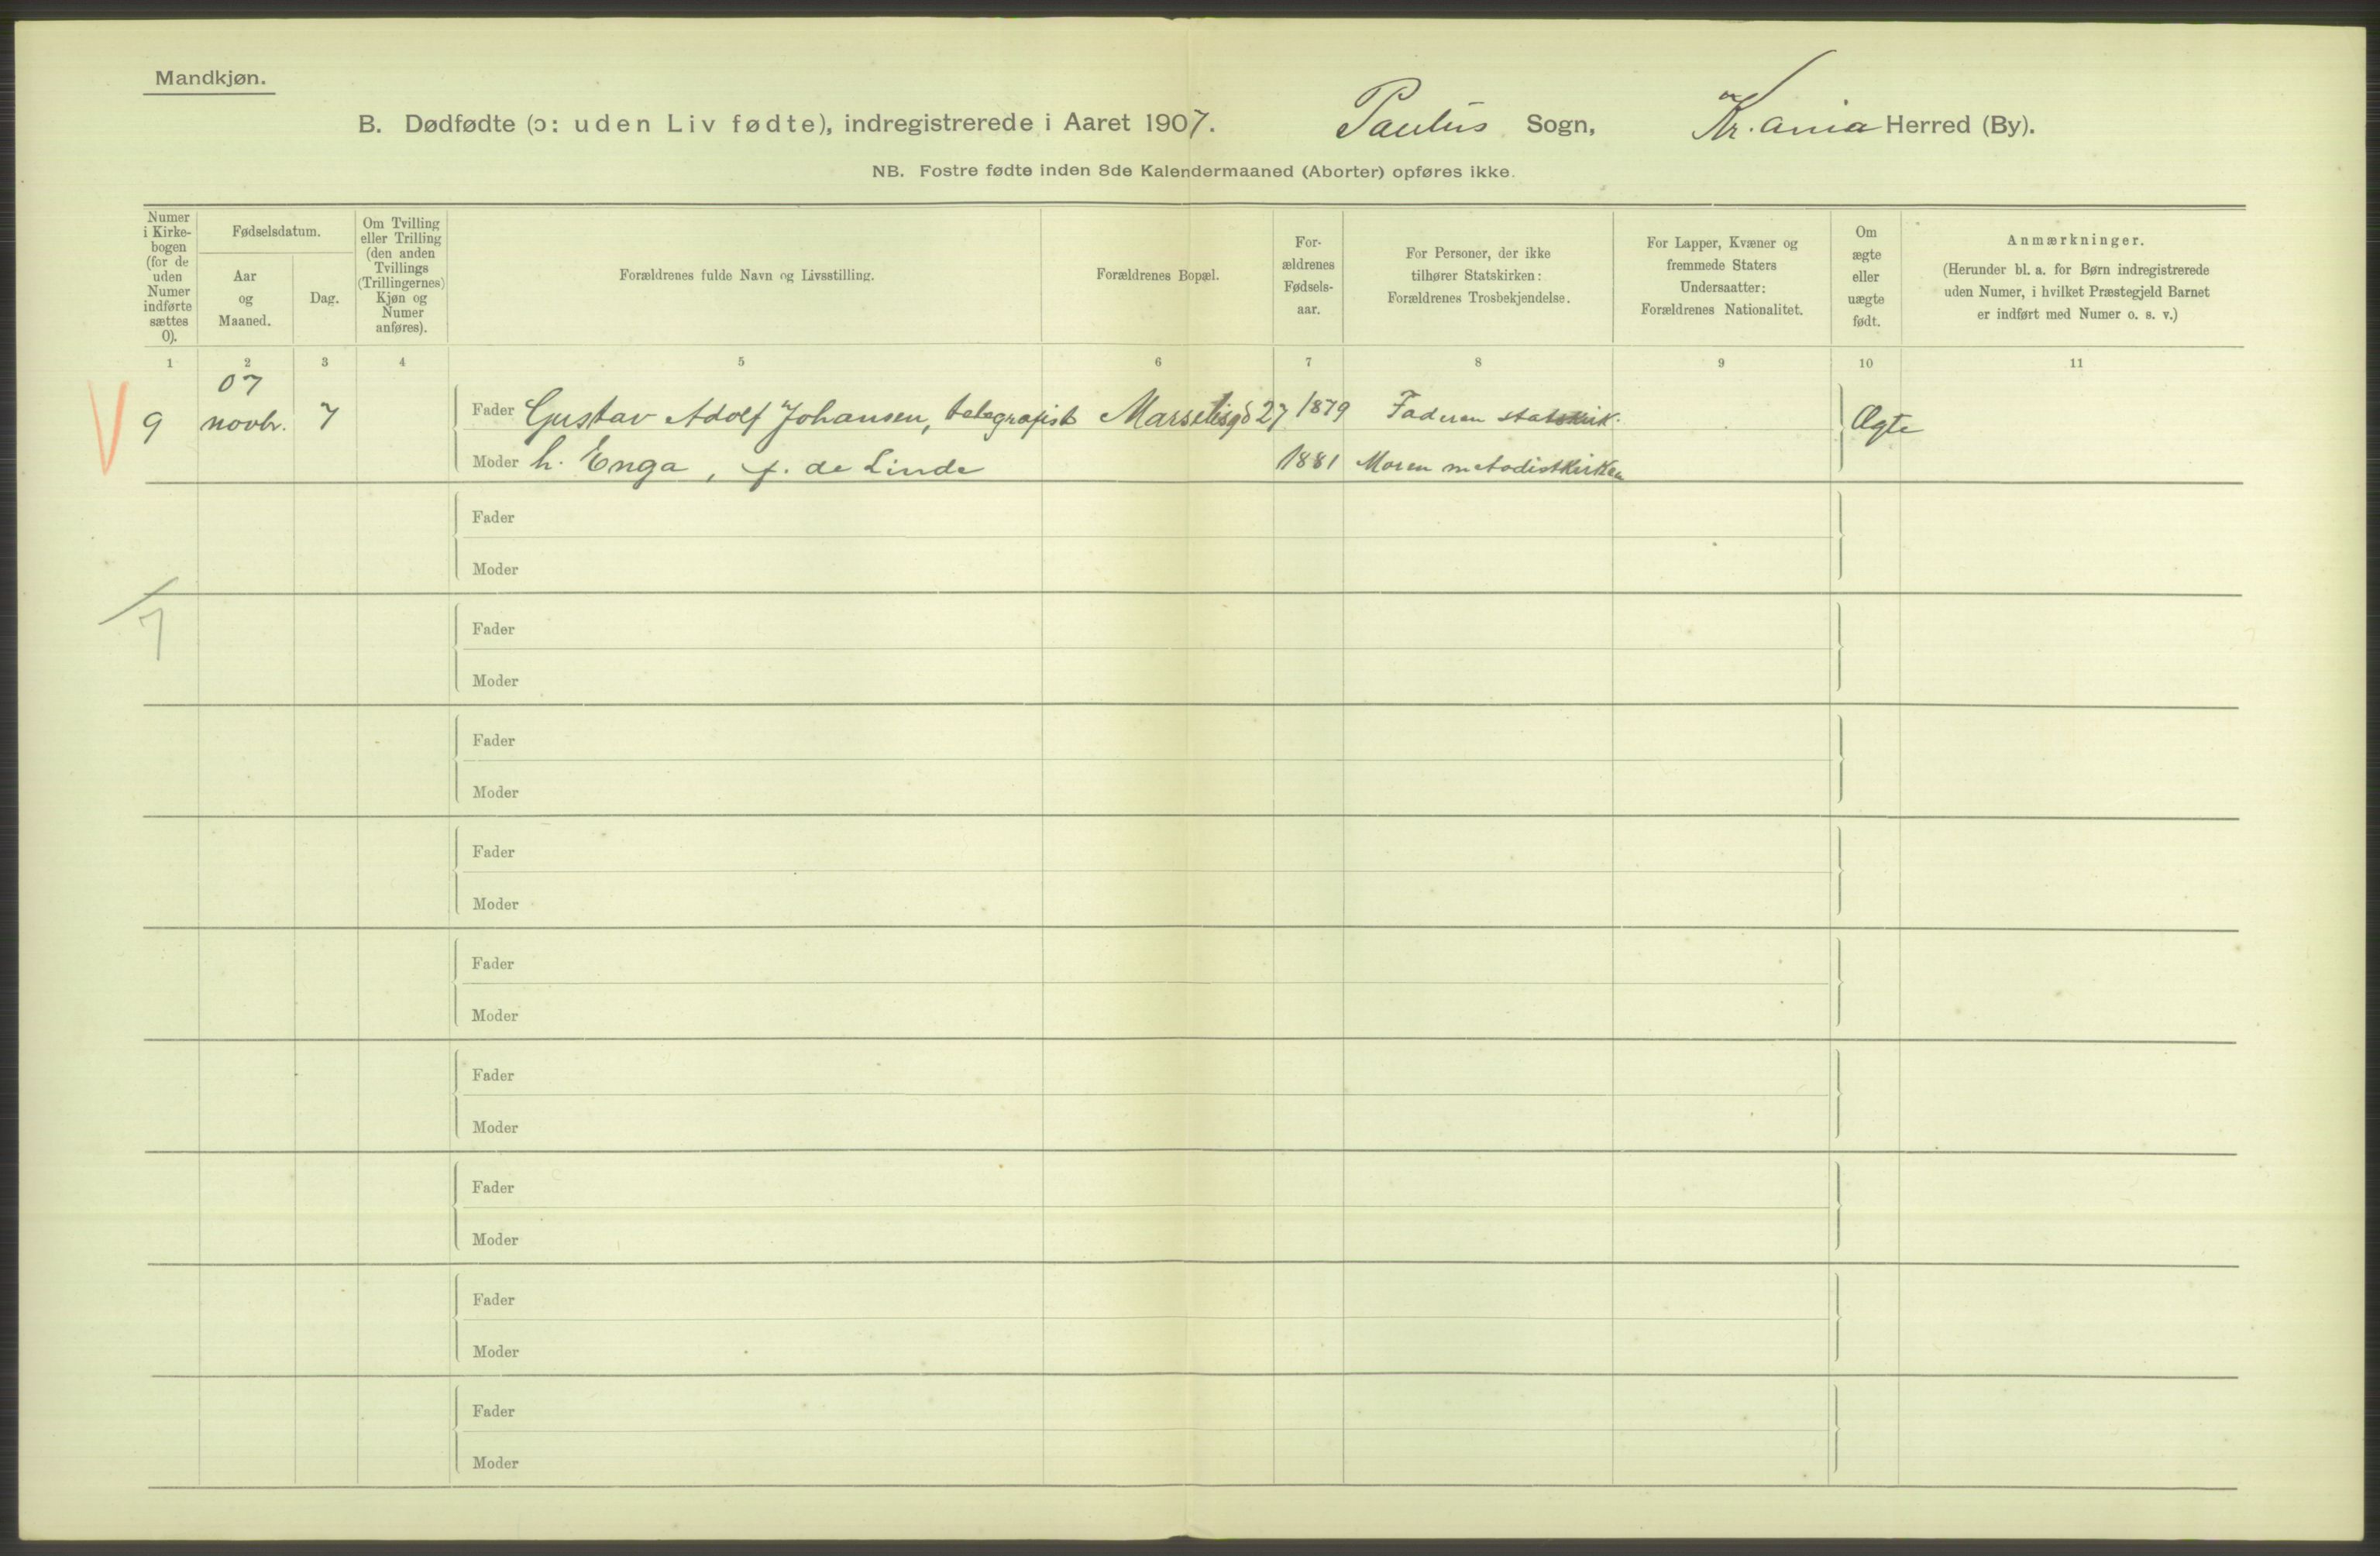 Mandkjøn.
B. Dødfødte (ɔ: uden Liv fødte), indregistrerede i Aaret 1907. Paulus Sogn, Kr.ania Herred (By).
NB. Fostre fødte inden 8de Kalendermaaned (Aborter) opføres ikke.
Numer i Kirke-bogen (for de uden Numer indførte sættes 0).
Fødselsdatum.
Aar og Maaned.
Dag.
Om Tvilling eller Trilling (den anden Tvillings (Trillingernes) Kjøn og Numer anføres).
Forældrenes fulde Navn og Livsstilling.
Forældrenes Bopæl.
For-ældrenes Fødsels-aar.
For Personer, der ikke tilhører Statskirken: Forældrenes Trosbekjendelse.
For Lapper, Kvæner og fremmede Staters Undersaatter: Forældrenes Nationalitet.
Om ægte eller uægte født.
Anmærkninger.
(Herunder bl. a. for Børn indregistrerede uden Numer, i hvilket Præstegjeld Barnet er indført med Numer o. s. v.)
1 2 3 4 5 6 7 8 9 10 11
07
V 9 novbr. 7 Fader Gustav Adolf Johansen, telegrafist Marselisgd 27 1879 Faderen statskirk. Ægte
Moder h. Enga, f. de Linde 1881 Moren metodistkirken
Fader
Moder
7
Fader
Moder
Fader
Moder
Fader
Moder
Fader
Moder
Fader
Moder
Fader
Moder
Fader
Moder
Fader
Moder